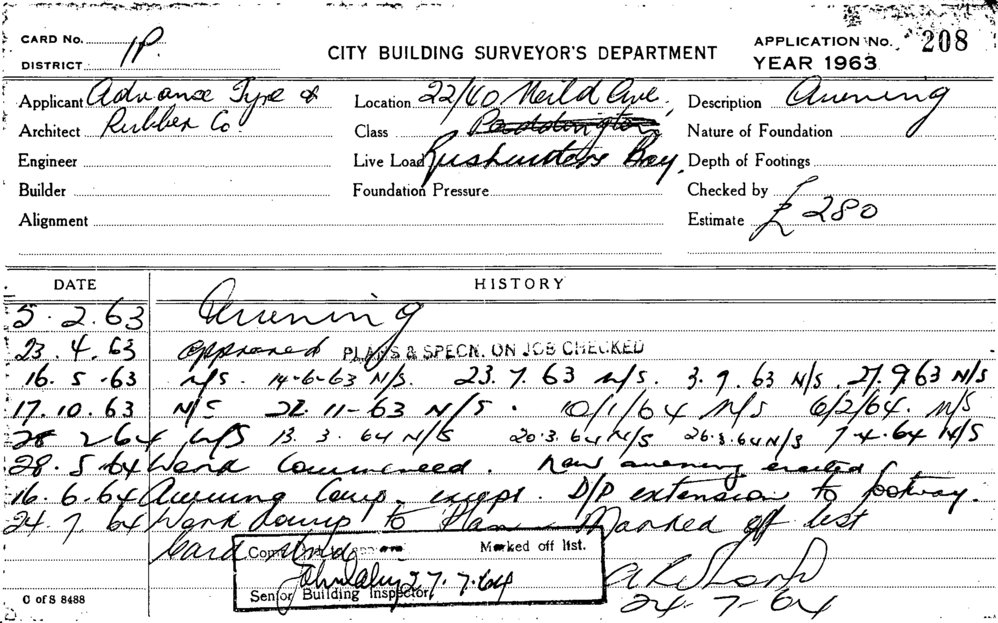 CARD No. 1P. CITY BUILDING SURVEYOR'S DEPARTMENT APPLICATION No. 208
DISTRICT YEAR 1963
Applicant Advance Tyre & Location 22/40 Neild Ave. Description Awning
Architect Rubber Co. Class Paddington Nature of Foundation
Engineer Live Load Rushcutters Bay. Depth of Footings
Builder Foundation Pressure Checked by
Alignment Estimate £280
DATE HISTORY
5.2.63 Awning
23.4.63 approved PLANS & SPECN. ON JOB CHECKED
16.5.63 N/S. 14-6-63 N/S. 23.7.63 N/S. 3.9.63 N/S. 27.9.63 N/S
17.10.63 N/S 22.11-63 N/S. 10/1/64 N/S 6/2/64. N/S
28 2 64 N/S 13.3.64 N/S 20.3.64 N/S 26.3.64 N/S 7.4.64 N/S
28.5.64 Work Commenced. New awning erected
16.6.64 Awning Comp. except. D/P extension to footway.
24.7.64 Work Comp to Plan Marked off list
Card Marked off list.
27.7.64
Senior Building Inspector
24-7-64
C of S 8488